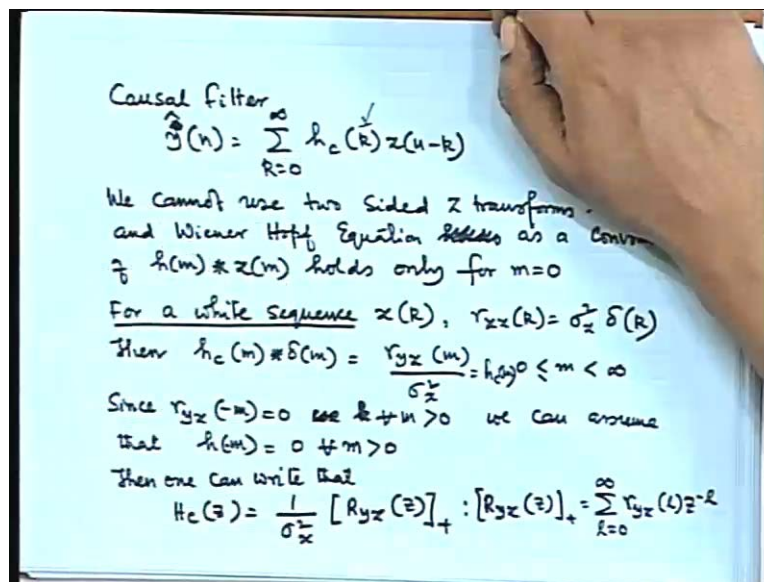 Causal filter
ŷ(n) = ∑_{k=0}^{∞} h_c(k) x(n-k)
We cannot use two sided Z transforms.
and Wiener Hopf Equation as a
of h(m) * x(m) holds only for m=0
For a white sequence x(k), r_xx(k) = σ_x^2 δ(k)
Then h_c(m) * δ(m) = r_yx(m) / σ_x^2 = h_c(m) 0 ≤ m < ∞
Since r_yx(-m)=0 ∀ m >0 we can assume
that h(-m) = 0 ∀ m>0
Then one can write that
H_c(z) = 1/σ_x^2 [R_yx(z)]_+ : [R_yx(z)]_+ = ∑_{l=0}^{∞} r_yx(l) z^{-l}